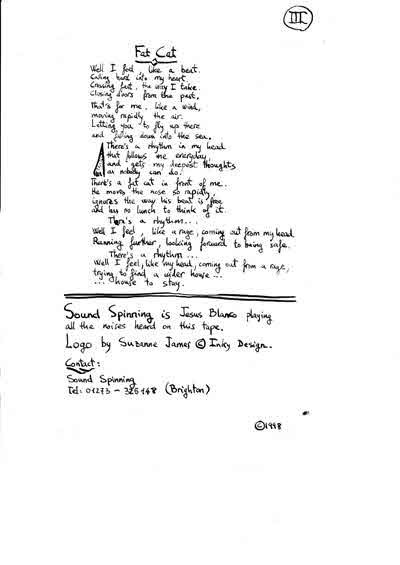 III
Fat Cat
Well I feel like a beat.
Caling hard into my heart.
Crossing fast, the way I take.
Closing doors from the past.
That's for me, like a wind,
moving rapidly the air.
Letting you to fly up there
and falling down into the sea.
There's a rhythm in my head
that follows me everyday,
and gets my deepest thoughts
as nobody can do.
There's a fat cat in front of me..
He moves the nose so rapidly,
ignores the way his beat is free
and has no lunch to think of it.
There's a rhythm...
Well I feel, like a rage, coming out from my head.
Running further, looking forward to being safe.
There's a rhythm...
Well I feel, like my head, coming out from a rage,
trying to find a wider house...
... house to stay.
Sound Spinning is Jesus Blanco playing
all the noises heard on this tape.
Logo by Suzanne James © Inky Design.
Contact:
Sound Spinning
Tel: 01273 - 325148 (Brighton)
©1998